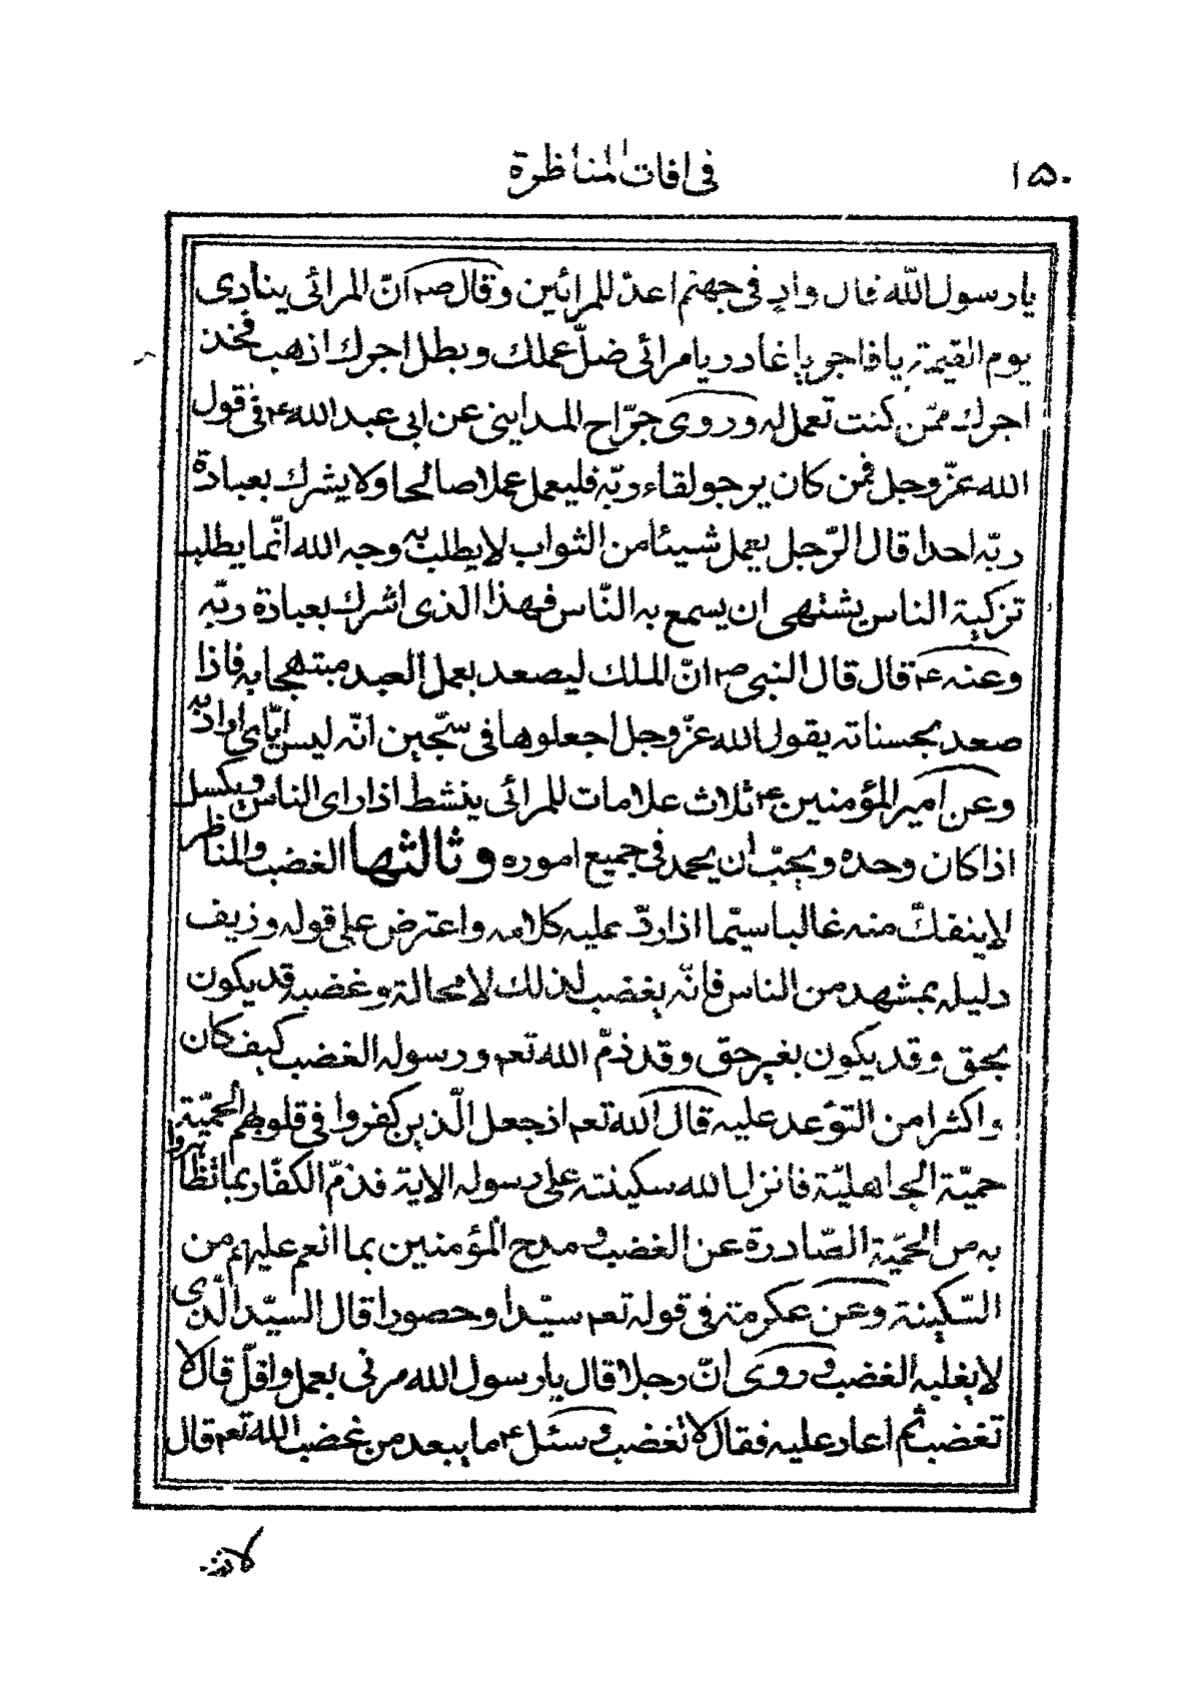 ١٥٠
فى افات المناظرة
يا رسول الله قال واد فى جهنم اعدّ للمرائين وقال ص انّ المرائى ينادى
يوم القيمة يا فاجر يا غادر يا مرائى ضلّ عملك وبطل اجرك اذهب فخذ
اجرك ممّن كنت تعمل له وروى جرّاح المداينى عن ابى عبد الله ع فى قول
الله عزّ وجل فمن كان يرجو لقاء ربّه فليعمل عملا صالحا ولا يشرك بعبادة
ربّه احدا قال الرّجل يعمل شيئا من الثواب لا يطلب به وجه الله انّما يطلب
تزكية الناس يشتهى ان يسمع به النّاس فهذا الذى اشرك بعبادة ربّه
وعنه ع قال قال النبى ص انّ الملك ليصعد بعمل العبد مبتهجا به فاذا
صعد بحسناته يقول الله عزّ وجل اجعلوها فى سجّين انّه ليس ايّاى اراد به
وعن امير المؤمنين ع ثلاث علامات للمرائى ينشط اذا راى الناس ويكسل
اذا كان وحده ويحبّ ان يحمد فى جميع اموره وثالثها الغضب والمناظر
لا ينفكّ منه غالبا سيّما اذا ردّ عليه كلامه واعترض على قوله وزيف
دليله بمشهد من الناس فإنّه يغضب لذلك لا محالة وغضبه قد يكون
بحق وقد يكون بغير حق وقد ذمّ الله تعم ورسوله الغضب كيف كان
واكثرا من التوّعد عليه قال الله تعم اذ جعل الّذين كفروا فى قلوبهم الحميّة
حميّة الجاهليّة فانزل الله سكينته على رسوله الاية فذمّ الكفّار بما تظاهروا
به من الحميّة الصّادرة عن الغضب و مدح المؤمنين بما انعم عليهم من
السّكينة وعن عكرمة فى قوله تعم سيّدا وحصورا قال السيّد الّذى
لا يغلبه الغضب وروى انّ رجلا قال يا رسول الله مرنى بعمل واقلّ قال لا
تغضب ثم اعاد عليه فقال لا تغضب وسئل ع ما يبعد من غضب الله تعم قال